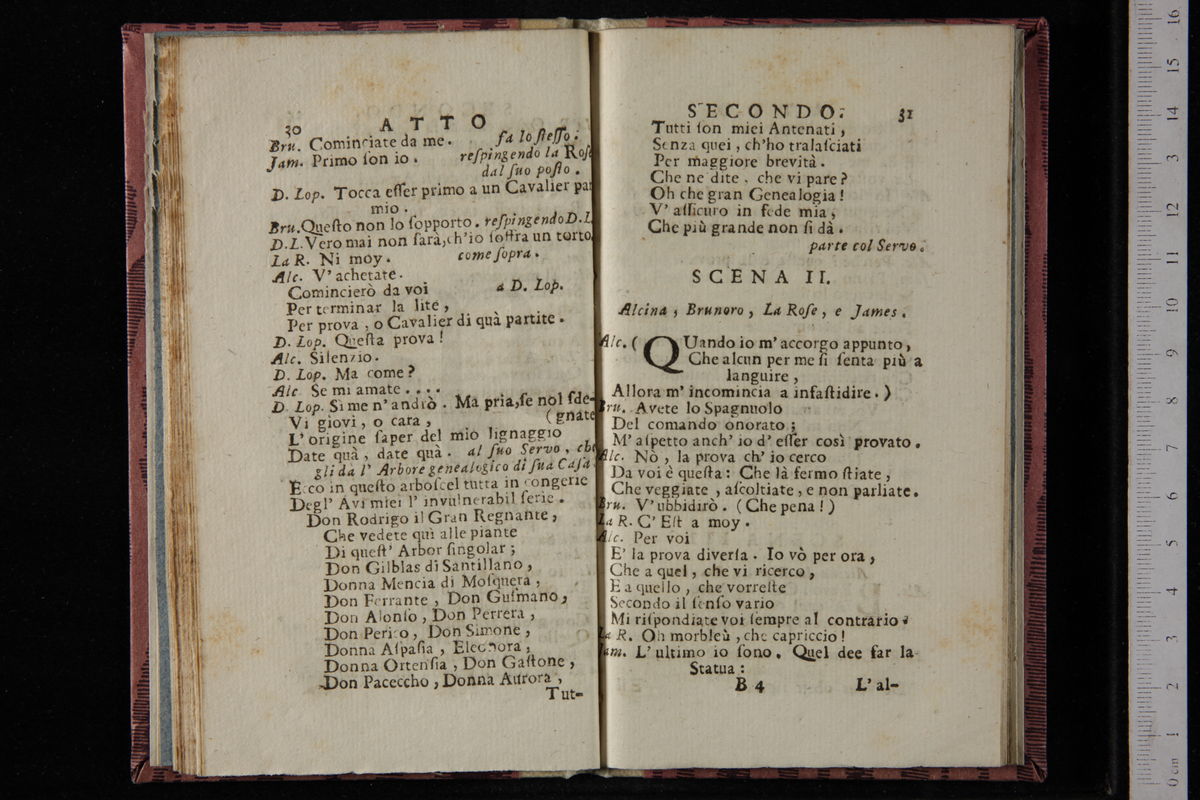 30 ATTO
Bru. Cominciate da me. fa lo ſteſſo.
Jam. Primo ſon io. reſpingendo la Roſe
dal ſuo poſto.
D. Lop. Tocca eſſer primo a un Cavalier par
mio.
Bru. Queſto non lo ſopporto. reſpingendo D. L.
D. L. Vero mai non ſarà, ch'io ſoffra un torto.
La R. Ni moy. come ſopra.
Alc. V' achetate.
Comincierò da voi a D. Lop.
Per terminar la lite,
Per prova, o Cavalier di quà partite.
D. Lop. Queſta prova!
Alc. Silenzio.
D. Lop. Ma come?
Alc. Se mi amate....
D. Lop. Sì me n' andrò. Ma pria, ſe nol ſde-
Vi giovi, o cara, (gnate
L' origine ſaper del mio lignaggio
Date quà, date quà. al ſuo Servo, che
gli dà l' Arbore genealogico di ſua Caſa.
Ecco in queſto arboſcel tutta in congerie
Degl' Avi miei l' invulnerabil ſerie.
Don Rodrigo il Gran Regnante,
Che vedete quì alle piante
Di queſt' Arbor ſingolar;
Don Gilblas di Santillano,
Donna Mencia di Moſquera,
Don Ferrante, Don Guſmano,
Don Alonſo, Don Perrera,
Don Perico, Don Simone,
Donna Aſpaſia, Eleonora,
Donna Ortenſia, Don Gaſtone,
Don Paceccho, Donna Aurora,
Tut-
SECONDO. 31
Tutti ſon miei Antenati,
Senza quei, ch'ho tralaſciati
Per maggiore brevità.
Che ne dite, che vi pare?
Oh che gran Genealogia!
V' aſſicuro in fede mia,
Che più grande non ſi dà.
parte col Servo.
SCENA II.
Alcina, Brunoro, La Roſe, e James.
Alc. (QUando io m' accorgo appunto,
Che alcun per me ſi ſenta più a
languire,
Allora m' incomincia a infaſtidire.)
Bru. Avete lo Spagnuolo
Del comando onorato;
M' aſpetto anch' io d' eſſer così provato.
Alc. Nò, la prova ch' io cerco
Da voi è queſta: Che là fermo ſtiate,
Che veggiate, aſcoltiate, e non parliate.
Bru. V' ubbidirò. (Che pena!)
La R. C' Eſt a moy.
Alc. Per voi
E' la prova diverſa. Io vò per ora,
Che a quel, che vi ricerco,
E a quello, che vorreſte
Secondo il ſenſo vario
Mi riſpondiate voi ſempre al contrario.
La R. Oh morbleù, che capriccio!
Jam. L' ultimo io ſono. Quel dee far la
Statua:
B 4 L' al-
0 cm 1 2 3 4 5 6 7 8 9 10 11 12 13 14 15 16